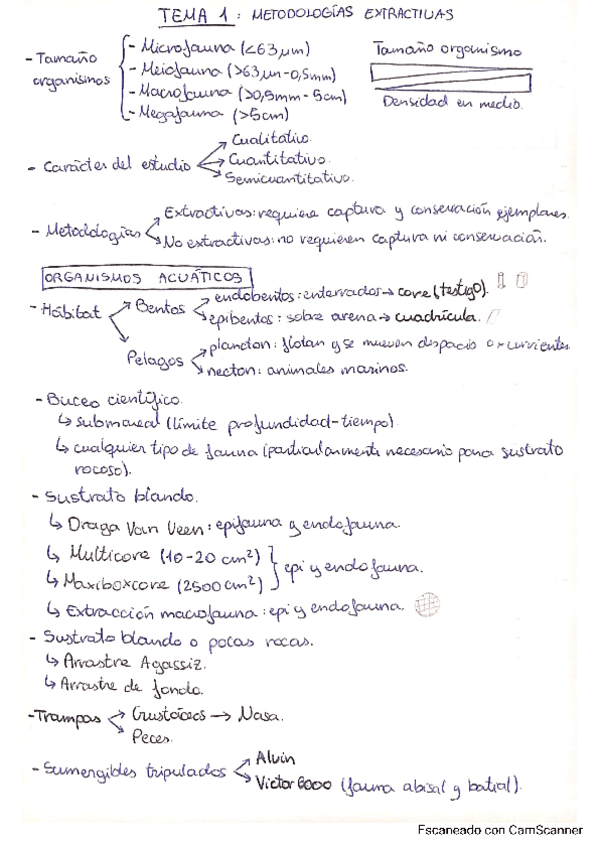 TEMA 1: METODOLOGÍAS EXTRACTIVAS
- Tamaño organismos
- Microfauna (<63 μm)
- Meiofauna (>63 μm-0,5mm)
- Macrofauna (>0,5mm - 5cm)
- Megafauna (>5cm)
Tamaño organismo
Densidad en medio.
- Carácter del estudio
→ Cualitativo.
→ Cuantitativo.
→ Semicuantitativo.
- Metodologías
→ Extractivas: requiere captura y conservación ejemplares.
→ No extractivas: no requieren captura ni conservación.
ORGANISMOS ACUÁTICOS
- Hábitat
→ Bentos
→ endobentos: enterrados → core (testigo).
→ epibentos: sobre arena → cuadrícula.
→ Pelagos
→ plancton: flotan y se mueven despacio o x corrientes
→ necton: animales marinos.
- Buceo científico.
↳ submareal (límite profundidad-tiempo)
↳ cualquier tipo de fauna (particularmente necesario para sustrato
rocoso).
- Sustrato blando.
↳ Draga Van Veen: epifauna y endofauna.
↳ Multicore (10-20 cm²)
↳ Maxiboxcore (2500 cm²)
epi y endofauna.
↳ Extracción macrofauna: epi y endofauna.
- Sustrato blando o pocas rocas.
↳ Arrastre Agassiz.
↳ Arrastre de fondo.
- Trampas
→ Crustáceos → Nasa.
→ Peces.
- Sumergibles tripulados
→ Alvin
→ Victor 6000 (fauna abisal y batial).
Escaneado con CamScanner